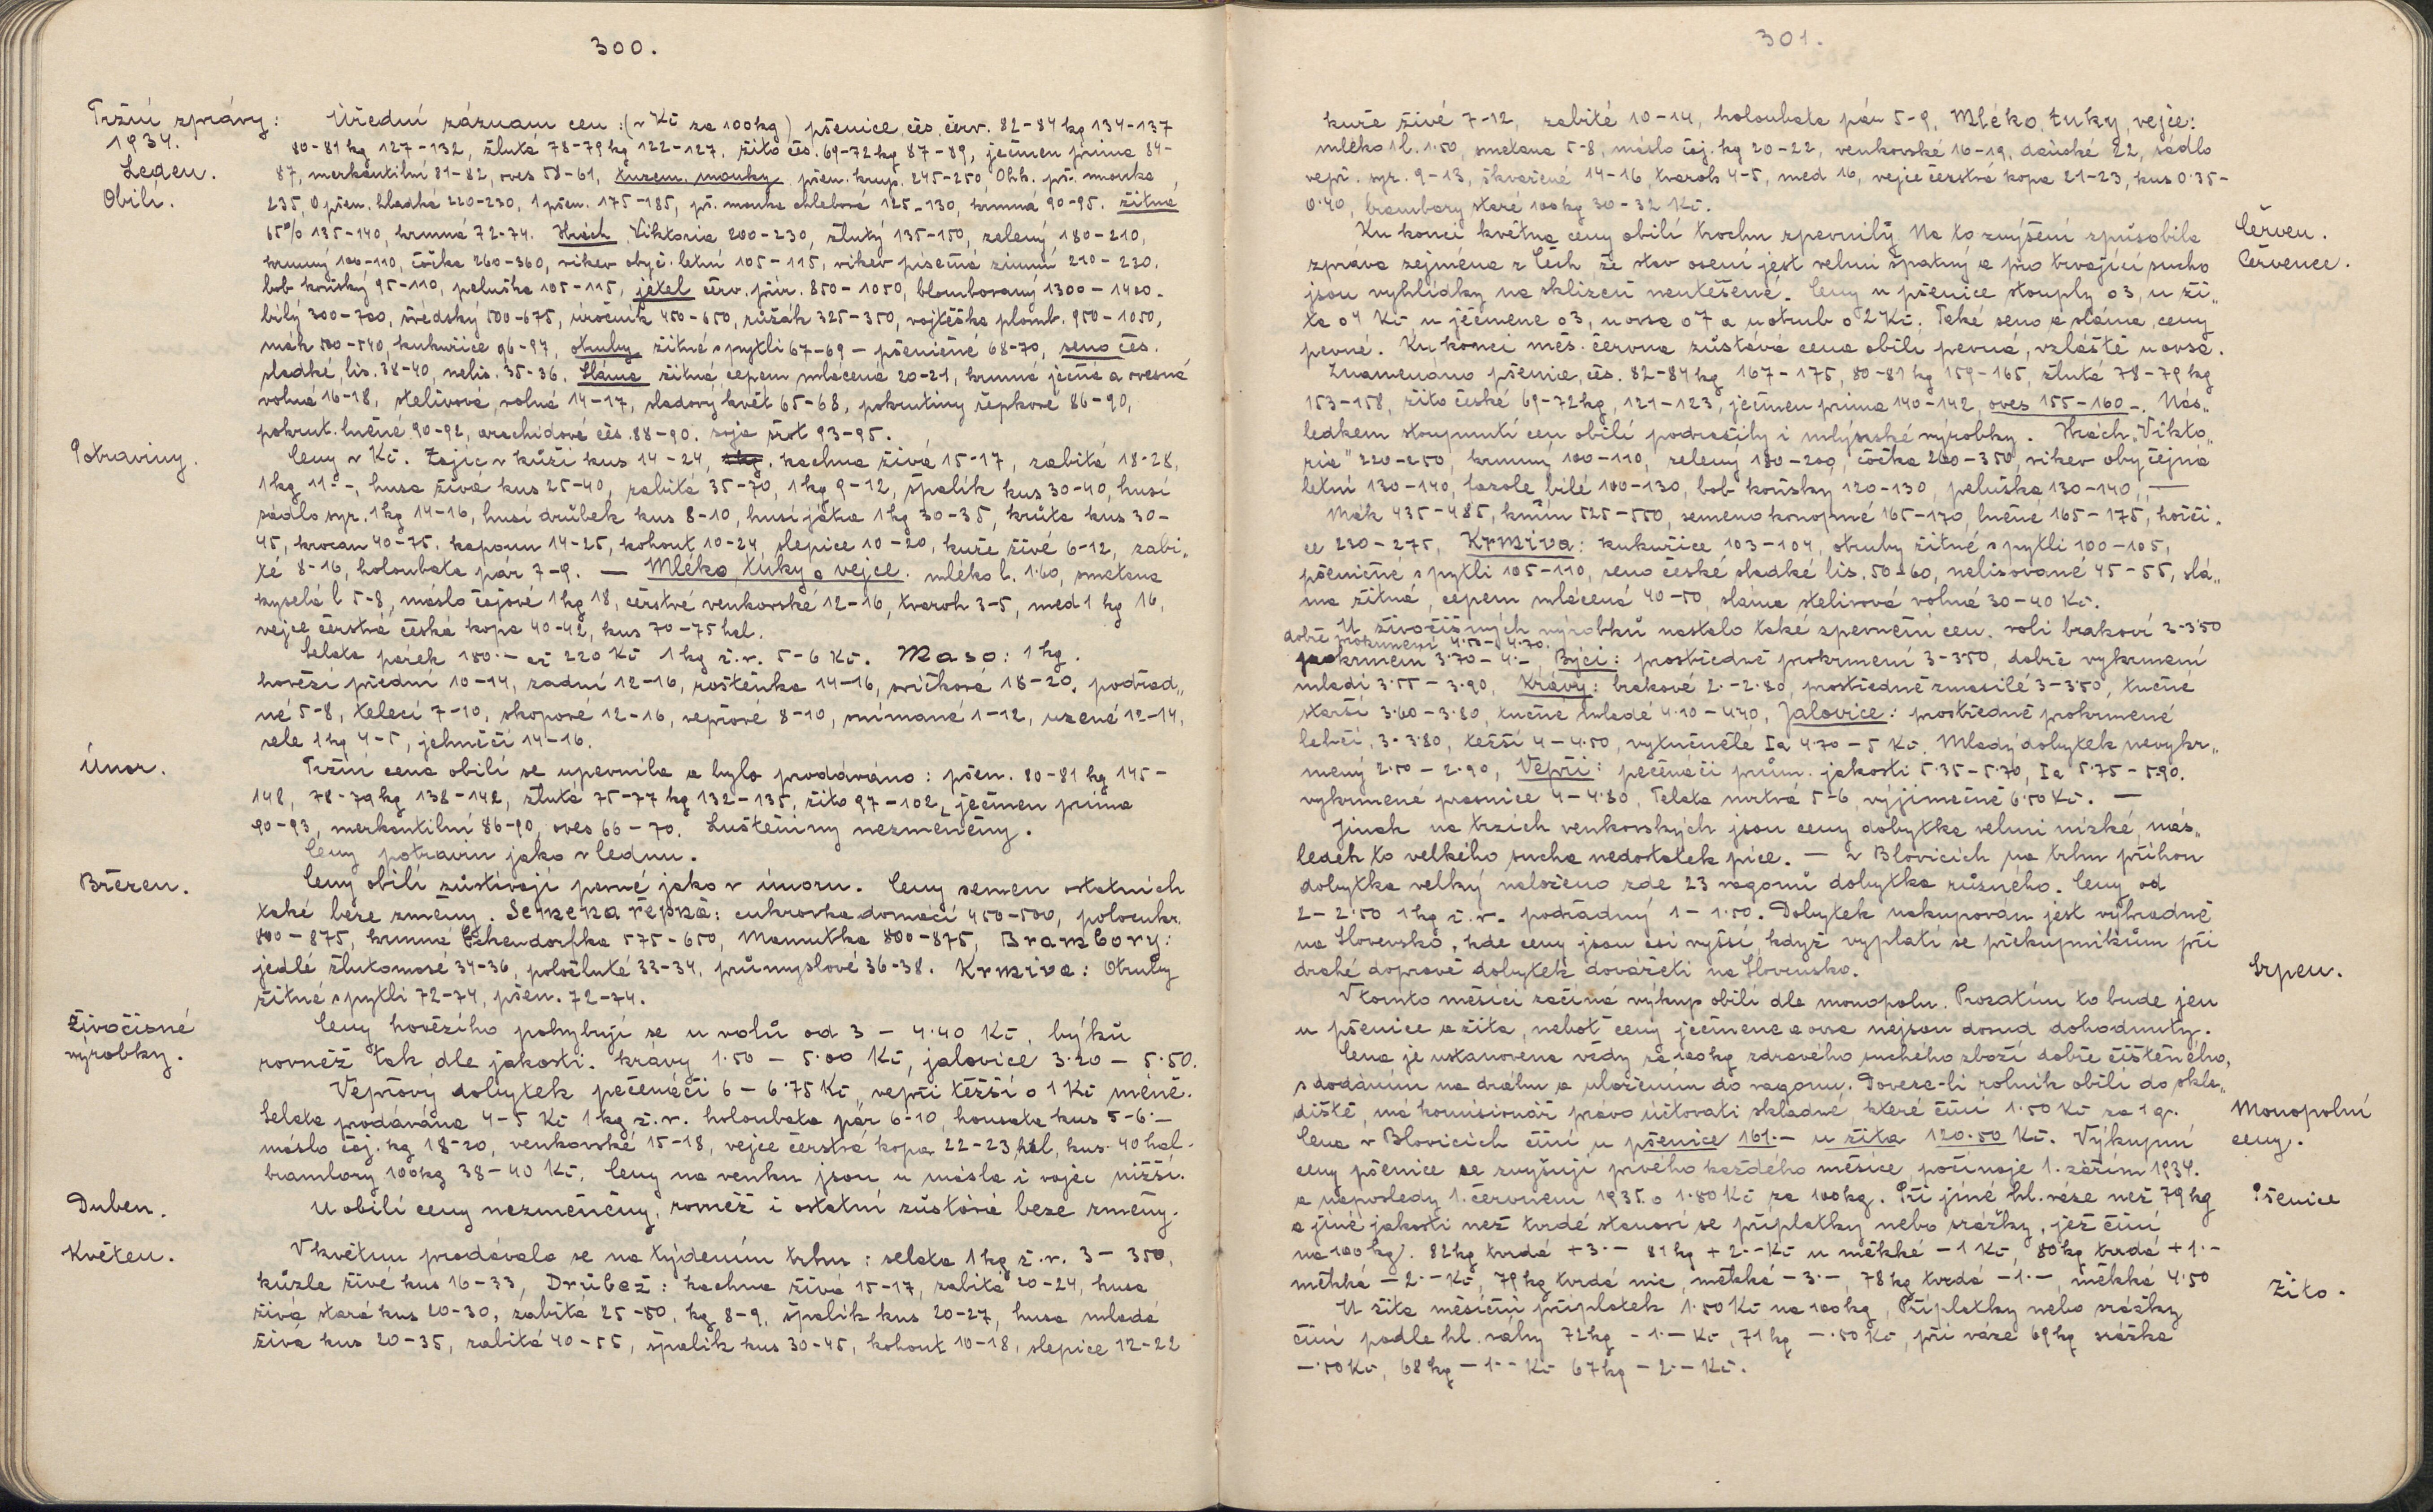 300.
Tržní zprávy:
1934.
Leden.
Obilí.
Úřední záznam cen :(v Kč za 100kg) pšenice čes. červ. 82-84 kg 134-137
80-81 kg 127-132, žlutá 78-79 kg 122-127. žito čes. 69-72 kg 87-89, ječmen prima 84-
87, merkantilní 81-82, oves 58-61, tuzem. mouky pšen. krup. 245-250, Ohh. pš. mouka
235, 0 pšen. hladká 220-230, 1 pšen. 175-185, pš. mouka chlebová 125-130, krmná 90-95. žitná
65% 135-140, krmná 72-74. Hrách Viktoria 200-230, žlutý 135-150, zelený 180-210,
krmný 100-110, čočka 260-360, vikev obyč. letní 105-115, vikev písečná zimní 210-230.
bob koňský 95-110, peluška 105-115, jetel červ. přír. 850-1050, plombovaný 1300-1400.
bílý 300-700, švédský 500-675, úročník 450-650, růžák 325-350, vojtěška plomb. 950-1050,
mák 500-540, kukuřice 96-97, otruby žitné s pytli 67-69 — pšeničné 68-70, seno čes.
sladké, lis. 38-40, nelis. 35-36. Sláma žitná, cepem mlácená 20-21, krmná ječná a ovesná
volná 16-18, stelivová, volná 14-17, sladový květ 65-68, pokrutiny řepkové 86-90,
pokrut. lněné 90-92, arachidové čes. 88-90. soja šrot 93-95.
Potraviny.
Ceny v Kč. Zajíc v kůži kus 14-24, kachna živá 15-17, zabitá 18-28,
1kg 11·-, husa živá kus 25-40, zabitá 35-70, 1kg 9-12, špalík kus 30-40, husí
sádlo syr. 1kg 14-16, husí drůbek kus 8-10, husí játra 1kg 30-35, krůta kus 30-
45, krocan 40-75. kapoun 14-25, kohout 10-24, slepice 10-20, kuře živé 6-12, zabi„
té 8-16, holoubata pár 7-9. — Mléko, tuky a vejce. mléko l. 1·60, smetana
kyselá l 5-8, máslo čajové 1kg 18, čerstvé venkovské 12-16, tvaroh 3-5, med 1 kg 16,
vejce čerstvá česká kopa 40-42, kus 70-75 hal.
Selata párek 180·- až 220 Kč 1 kg ž.v. 5-6 Kč. Maso: 1 kg.
hovězí přední 10-14, zadní 12-16, roštěnka 14-16, svíčková 18-20. podřad„
né 5-8, telecí 7-10, skopové 12-16, vepřové 8-10, snímané 1-12, uzené 12-14,
sele 1kg 4-5, jehněčí 14-16.
Únor.
Tržní cena obilí se upevnila a bylo prodáváno: pšen. 80-81 kg 145-
148, 78-79kg 138-142, žlutá 75-77 kg 132-135, žito 97-102, ječmen prima
90-93, merkantilní 86-90, oves 66-70. Luštěniny nezměněny.
Ceny potravin jako v lednu.
Březen.
Ceny obilí zůstávají pevné jako v únoru. Ceny semen ostatních
také beze změny. Semena řepná: cukrovka domácí 450-500, polocukr.
800-875, krmná Ekendorfka 575-650, Mamutka 800-875, Brambory:
jedlé žlutomasé 34-36, položluté 33-34, průmyslové 36-38. Krmiva: Otruby
žitné s pytli 72-74, pšen. 72-74.
Živočišné
výrobky.
Ceny hovězího pohybují se u volů od 3 - 4·40 Kč, býků
rovněž tak dle jakosti. krávy 1·50 - 5·00 Kč, jalovice 3·20 - 5·50.
Vepřový dobytek pečenáči 6 - 6·75 Kč, vepři těžší o 1 Kč méně.
Selata prodávána 4-5 Kč 1 kg ž.v. holoubata pár 6-10, housata kus 5-6·-
máslo čaj. kg 18-20, venkovské 15-18, vejce čerstvá kopa 22-23, kus 40 hal.
brambory 100kg 38-40 Kč. Ceny na venku jsou u másla i vajec nižší.
Duben.
U obilí ceny nezměněny, rovněž i ostatní zůstává beze změny.
Květen.
V květnu prodávala se na týdenním trhu: selata 1kg ž.v. 3 - 350,
kůzle živé kus 16-33, Drůbež: kachna živá 15-17, zabitá 20-24, husa
živá stará kus 20-30, zabitá 25-50, kg 8-9, špalík kus 20-27, husa mladá
živá kus 20-35, zabitá 40-55, špalík kus 30-45, kohout 10-18, slepice 12-22
301.
kuře živé 7-12, zabité 10-14, holoubata pár 5-9, Mléko, tuky, vejce:
mléko 1l. 1·50, smetana 5-8, máslo čaj. kg 20-22, venkovské 16-19, dánské 22, sádlo
vepř. syr. 9-13, škvařené 14-16, tvaroh 4-5, med 16, vejce čerstvá kopa 21-23, kus 0·35-
0·40, brambory staré 100kg 30-32 Kč.
Červen.
Červenec.
Ku konci května ceny obilí trochu zpevnily. Na to zvýšení způsobila
zpráva zejména z Čech, že stav osení jest velmi špatný a pro trvající sucho
jsou vyhlídky na sklizeň neutěšené. Ceny u pšenice stouply o 3, u ži„
ta o 4 Kč, u ječmene o 3, u ovsa o 7 a u otrub o 2 Kč. Také seno a sláma, ceny
pevné. Ku konci měs. června zůstává cena obilí pevná, vzláště u ovsa.
Znamenáno pšenice, čes. 82-84 kg 167-175, 80-81 kg 159-165, žlutá 78-79 kg
153-158, žito české 69-72kg, 121-123, ječmen prima 140-142, oves 155-160-. Nás„
ledkem stoupnutí cen obilí podražily i mlýnské výrobky. Hrách „Vikto„
ria" 220-250, krmný 100-110, zelený 180-200, čočka 260-350, vikev obyčejná
letní 130-140, fazole bílé 100-130, bob koňský 120-130, peluška 130-140, —
Mák 435-485, kmín 525-550, semeno konopné 165-170, lněné 165-175, hořči.
ce 220-275, Krmiva: kukuřice 103-104, otruby žitné s pytli 100-105,
pšeničné s pytli 105-110, seno české sladké lis. 50-60, nelisované 45-55, slá„
ma žitná, cepem mlácená 40-50, sláma stelivová volná 30-40 Kč.
U živočišných výrobků nastalo také zpevnění cen. voli brakoví 2-3·50
dobře prokrmení 4·50-4·70.
prokrmení 3·70-4·-, Býci: prostředně prokrmení 3-3·50, dobře vykrmení
mladí 3·55-3·90, Krávy: brakové 2·-2·80, prostředně zmasilé 3-3·50, tučné
starší 3·60-3·80, tučné mladé 4·10-4·40, Jalovice: prostředně prokrmené
lehčí, 3-3·80, těžší 4-4·50, vytučnělé Ia 4·70-5 Kč. Mladý dobytek nevykr„
mený 2·50-2·90, Vepři: pečenáči prům. jakosti 5·35-5·70, Ia 5·75-5·90.
vykrmené prasnice 4-4·80, Telata mrtvá 5-6, výjimečně 6·50 Kč. —
Jinak na trzích venkovských jsou ceny dobytka velmi nízké, nás„
ledek to velkého sucha nedostatek píce. — V Blovicích na trhu příhon
dobytka velký naloženo zde 23 vagonů dobytka různého. Ceny od
2-2·50 1kg ž.v. podřadný 1-1·50. Dobytek nakupován jest výhradně
na Slovensko, kde ceny jsou asi vyšší, když vyplatí se překupníkům při
drahé dopravě dobytek dovážeti na Slovensko.
Srpen.
V tomto měsíci začíná výkup obilí dle monopolu. Prozatím to bude jen
u pšenice a žita, neboť ceny ječmene a ovsa nejsou dosud dohodnuty.
Cena je ustanovena vždy za 100kg zdravého, suchého zboží dobře čištěného,
s dodáním na dráhu a uložením do vagonu. Doveze-li rolník obilí do skla„
diště, má komisionář právo účtovati skladné, které činí 1·50 Kč za 1 q.
Monopolní
ceny.
Cena v Blovicích činí u pšenice 161·- u žita 120·50 Kč. Výkupní
ceny pšenice se zvyšují prvého každého měsíce, počínaje 1. zářím 1934.
a naposledy 1. červnem 1935. o 1·80 Kč za 100kg. Při jiné hl. váze než 79 kg
Pšenice
a jiné jakosti než tvrdé stanoví se příplatky nebo srážky, jež činí
na 100 kg). 82kg tvrdá +3·- 81 kg +2·- Kč u měkké -1 Kč, 80kg tvrdá +1·-
měkká -2·- Kč, 79kg tvrdá nic, měkká -3·-, 78kg tvrdá -1·-, měkká 4·50
Žito.
U žita měsíční příplatek 1·50 Kč na 100kg, Příplatky nebo srážky
činí podle hl. váhy 72kg - 1·- Kč, 71 kg -·50 Kč, při váze 69kg srážka
-·50 Kč, 68 kg - 1·- Kč 67 kg - 2·- Kč.